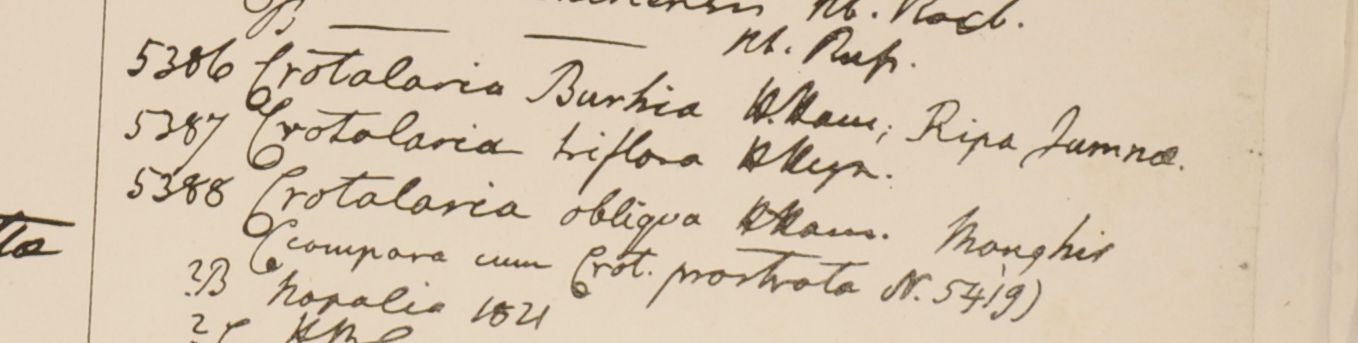 Hb. Roxb.
B — — Hb. Rufs.
5386 Crotalaria Burhia H.Ham; Ripa Jumnae.
5387 Crotalaria triflora HHeyn.
5388 Crotalaria obliqua HHam. Monghir
(compara cum Crot. prostrata N. 5419)
?B napalia 1821
tta